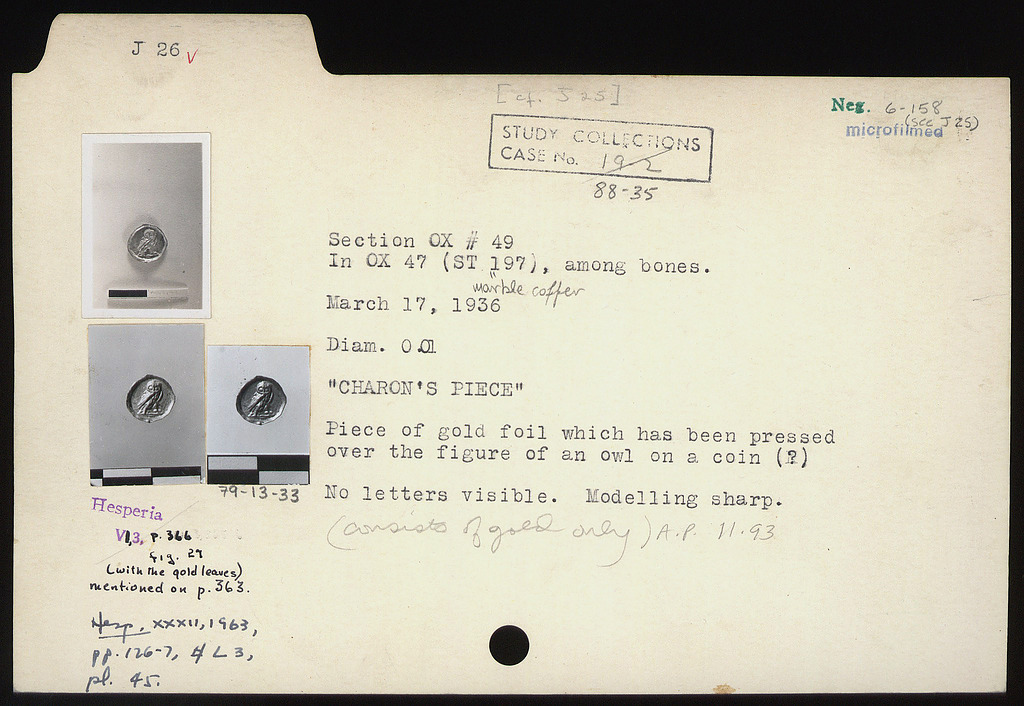 J 26 v
[cf. J 25]
Neg. 6-158
(see J 25)
microfilmed
STUDY COLLECTIONS
CASE No. 192
88-35
Section OX # 49
In OX 47 (ST 197), among bones.
" marble coffer
March 17, 1936
Diam. 0.01
"CHARON'S PIECE"
Piece of gold foil which has been pressed
over the figure of an owl on a coin (?)
No letters visible. Modelling sharp.
(consists of gold only) A.P. 11.93
79-13-33
Hesperia
VI,3, p. 366
fig. 29
(with the gold leaves)
mentioned on p. 363.
Hesp., XXXII, 1963,
pp. 126-7, # L 3,
pl. 45.